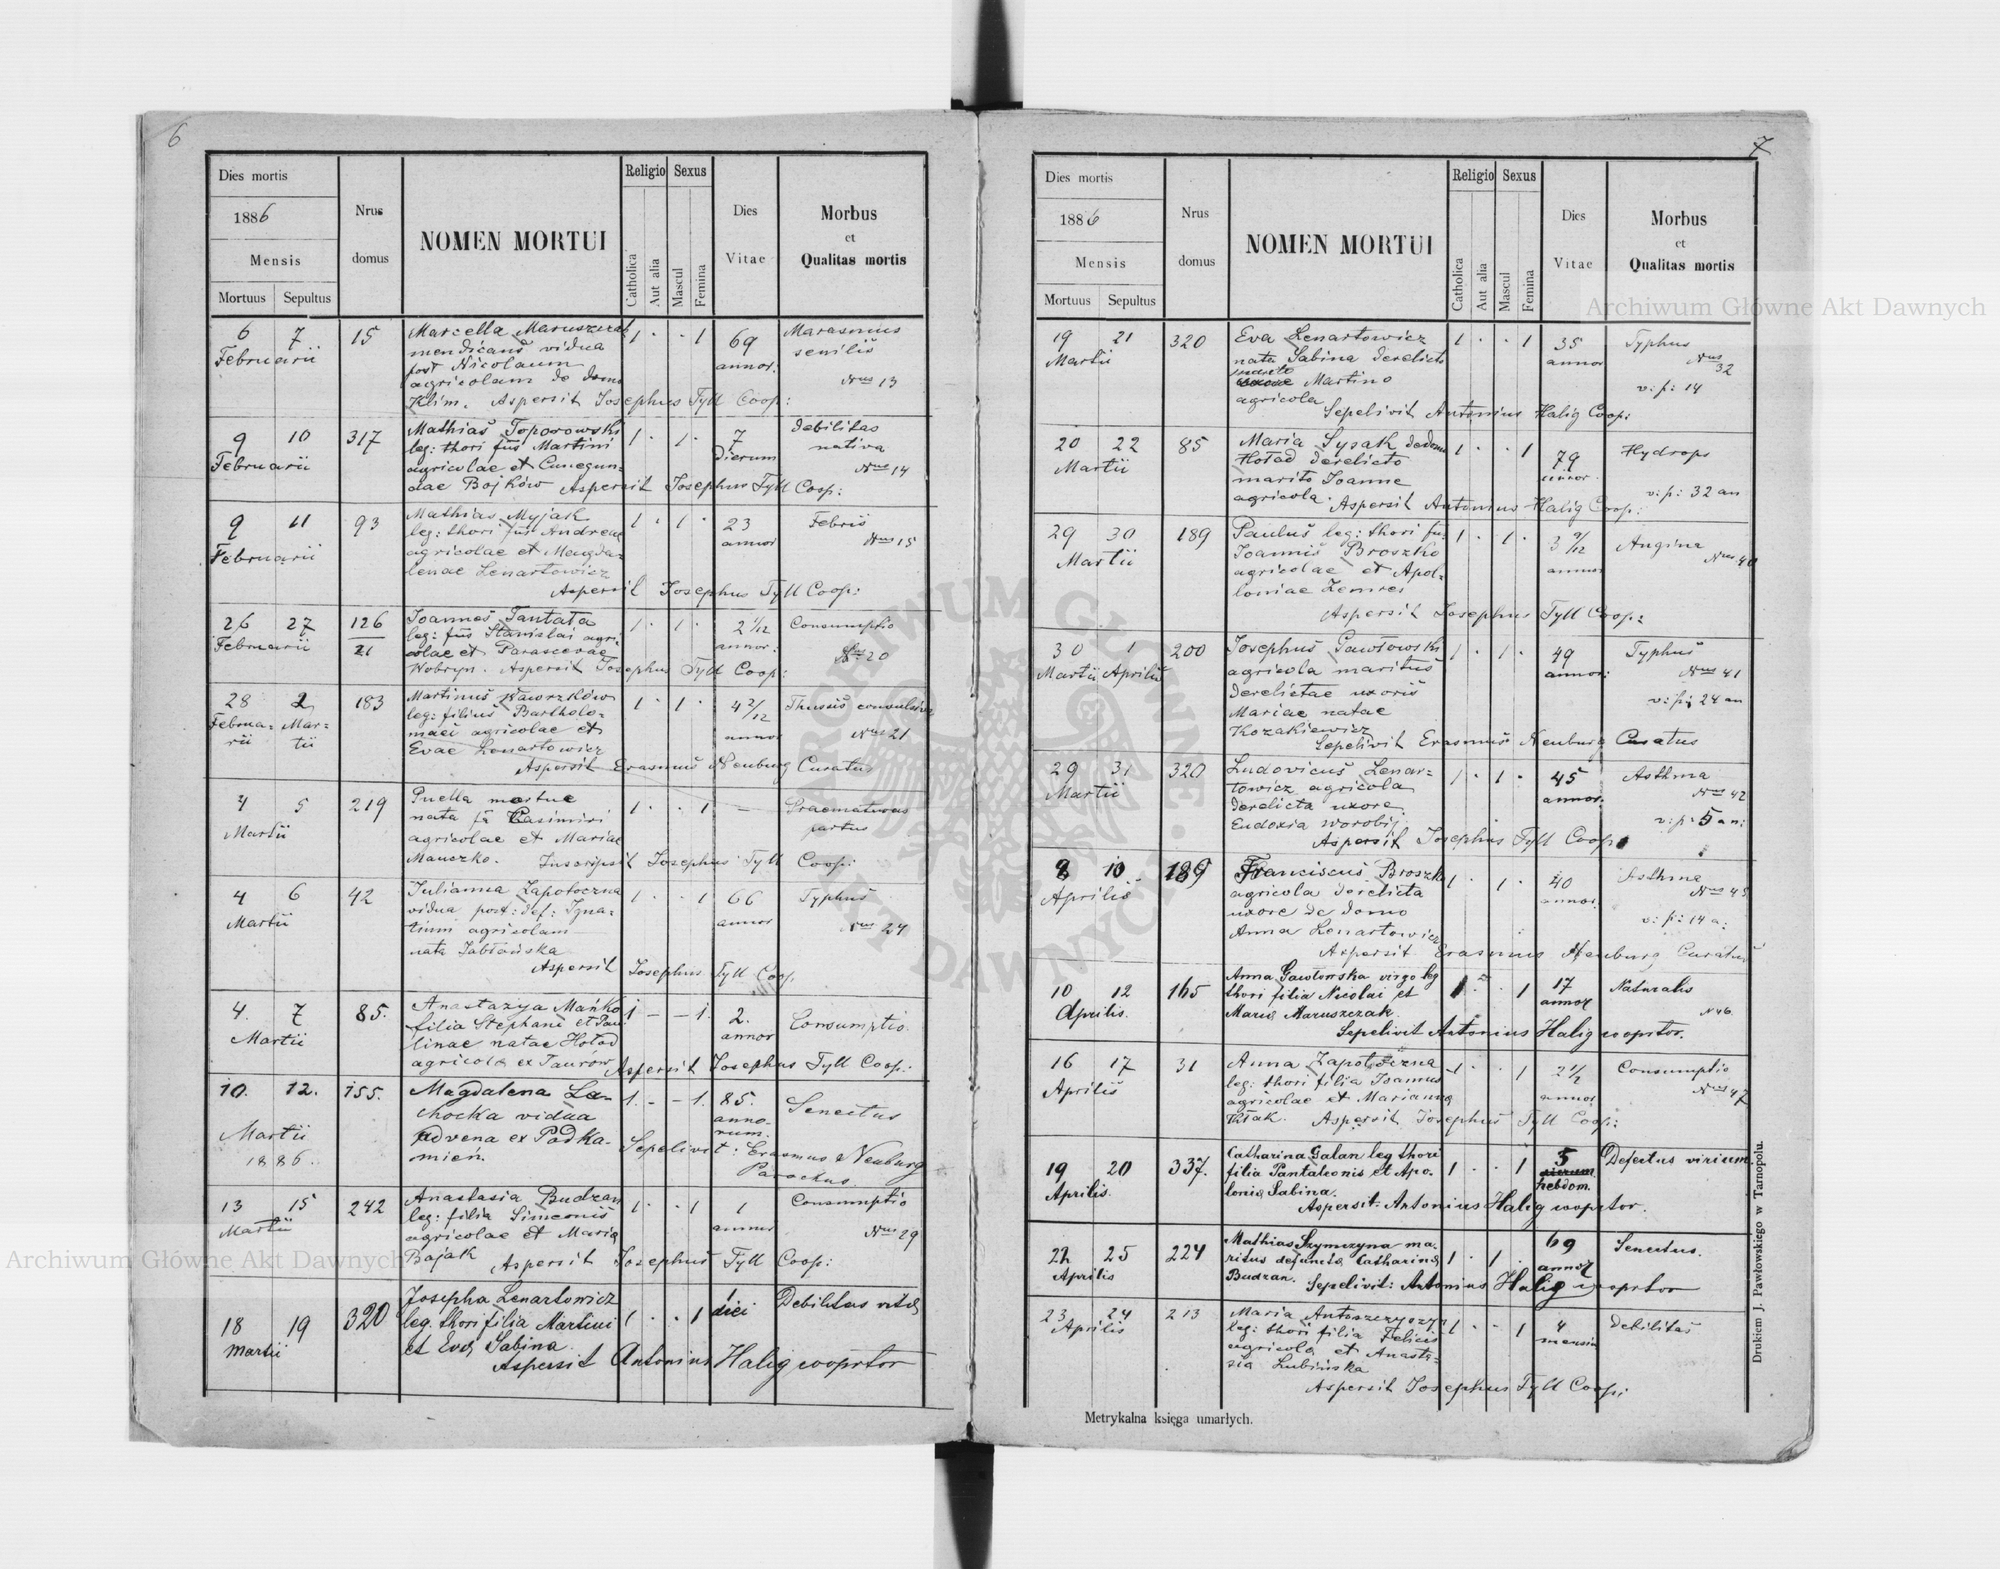 6
Dies mortis
1886
Mensis
Mortuus Sepultus
Nrus
domus
NOMEN MORTUI
Religio
Catholica
Aut alia
Sexus
Mascul
Femina
Dies
Vitae
Morbus
et
Qualitas mortis
6 7 15 Marcella 1 · · 1 69 Marasmus
Februarii vidua annor: senilis
post Nicolaum
agricolam de domo Nus 13
Klim. Aspersit Josephus Tyll Coop:
9 10 317 Mathias Toporowski 1 · 1 · 7 Debilitas
Februarii leg: thori fius Martini Dierum nativa
agricolae et Cunegun= Nus 14
dae Bojków Aspersit Josephus Tyll Coop:
9 11 93 Mathias Myjak 1 · 1 · 23 Febris
Februarii leg: thori fius Andreae annor Nus 15
agricolae et Magda=
lenae Lenartowicz
Aspersit Josephus Tyll Coop:
26 27 126 Joannes Tantata 1 · 1 · 2 1/12 Consumptio
Februarii 21 leg: fius Stanislai agri annor:
colae et Parascevae Nus 20
Wobryn. Aspersit Josephus Tyll Coop:
28 2 183 Martinus Jaworzków 1 · 1 · 4 2/12 Thussis
Februa- Mar- leg: filius Bartholo=
rii tii maei agricolae et annor Nus 21
Evae Lenartowicz
Aspersit Erasmus Neuburg Curatus
4 5 219 Puella mortue 1 · · 1 — Praematurus
Martii nata Casimiri partus
agricolae et Mariae
Mauczko. Inscripsit Josephus Tyll Coop:
4 6 42 Julianna Zapotoczna 1 · · 1 66 Typhus
Martii vidua post: def: Igna= annor
tium agricolam Nus 24
nata Jabłońska
Aspersit Josephus Tyll Coop.
4. 7 85. Anastazya Mańko 1 — — 1. 2. Consumptio.
Martii filia Stephani et Pau annor
linae natae Hołod
agricolae ex Taurów Aspersit Josephus Tyll Coop.:
10. 12. 155. Magdalena La- 1. — — 1. 85. Senectus
chocka vidua anno-
Martii advena ex Podka- rum.
1886. mień. Sepelivit: Erasmus Neuburg
Parochus.
13 15 242 Anastasia Budzan 1 · · 1 1 Consumptio
Martii leg: filia Simeonis annor
agricolae et Maria Nus 29
Bajak Aspersit Josephus Tyll Coop:
18 19 320 Josepha Lenartowicz 1 · · 1 1 Debilitas vitae
Martii leg. thori filia Martini diei
et Evae Sabina.
Aspersit Antonius Halig cooprtor
7
Dies mortis
1886
Mensis
Mortuus Sepultus
Nrus
domus
NOMEN MORTUI
Religio
Catholica
Aut alia
Sexus
Mascul
Femina
Dies
Vitae
Morbus
et
Qualitas mortis
19 21 320 Eva Lenartowicz 1 · · 1 35 Typhus
Martii nata Sabina derelicto annor Nus 32
marito
Martino v: p: 14
agricola
Sepelivit Antonius Halig Coop:
20 22 85 Maria Sysak de domo 1 · · 1 79 Hydrops
Martii Hołod derelicto annor
marito Joanne v: p: 32 an
agricola. Aspersit Antonius Halig Coop:
29 30 189 Paulus leg: thori fu: 1 · 1 · 3 9/12 Angina
Martii Joannis Broszko Nus 40
agricolae et Apol= annor
loniae Zemres
Aspersit Josephus Tyll Coop:
30 1 200 Josephus Gawłowski 1 · 1 · 49 Typhus
Martii Aprilis agricola maritus annor: Nus 41
derelictae uxoris v: p: 24 an
Mariae natae
Kozakiewicz
Sepelivit Erasmus Neuburg Curatus
29 31 320 Ludovicus Lenar= 1 · 1 · 45 Asthma
Martii towicz agricola annor. Nus 42
derelicta uxore v: p: 5 an:
Eudoxia Worobij
Aspersit Josephus Tyll Coop.
8 10 189 Franciscus Broszko 1 · 1 · 40 Asthma
Aprilis agricola derelicta annor. Nus 45
uxore de domo v: p: 14 a:
Anna Lenartowicz
Aspersit Erasmus Neuburg Curatus
10 12 165 Anna Gawłońska virgo leg 1 · · 1 17 Naturalis
Aprilis. thori filia Nicolai et annor
Mariae Maruszczak. N 46
Sepelivit Antonius Halig cooprtor.
16 17 31 Anna Zapotoczna 1 · · 1 2 1/2 Consumptio
Aprilis leg: thori filia Joannis Nus 47
agricolae et Marianna annor
Kłak. Aspersit Josephus Tyll Coop:
19 20 337. Catharina Galan leg thori 1 · · 1 5 Defectus virium.
Aprilis. filia Pantaleonis et Apo. dierum
loniae Sabina. hebdom.
Aspersit: Antonius Halig cooprtor.
22 25 224 Mathias Szymczyna ma- 1 · 1 · 69 Senectus.
Aprilis ritus defunctae Catharinae annor
Budzan. Sepelivit: Antonius Halig cooprtor
23 24 213 Maria Antoszczyszyn 1 · · 1 4 Debilitas
Aprilis leg: thori filia Felicis mensium
agricolae et Anasta=
sia Lubińska
Aspersit Josephus Tyll Coop:
Metrykalna księga umarłych.
Drukiem J. Pawłowskiego w Tarnopolu.
Archiwum Główne Akt Dawnych
Archiwum Główne Akt Dawnych
ARCHIWUM GŁÓWNE AKT DAWNYCH